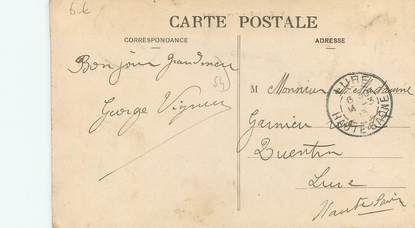 6.6
CARTE POSTALE
CORRESPONDANCE
ADRESSE
Bonjour grandmère
54
George Vignier
M Monsieur et Madame
Garnier
Quentin
Lure
Haute Saône
LURE
HAUTE-SAONE